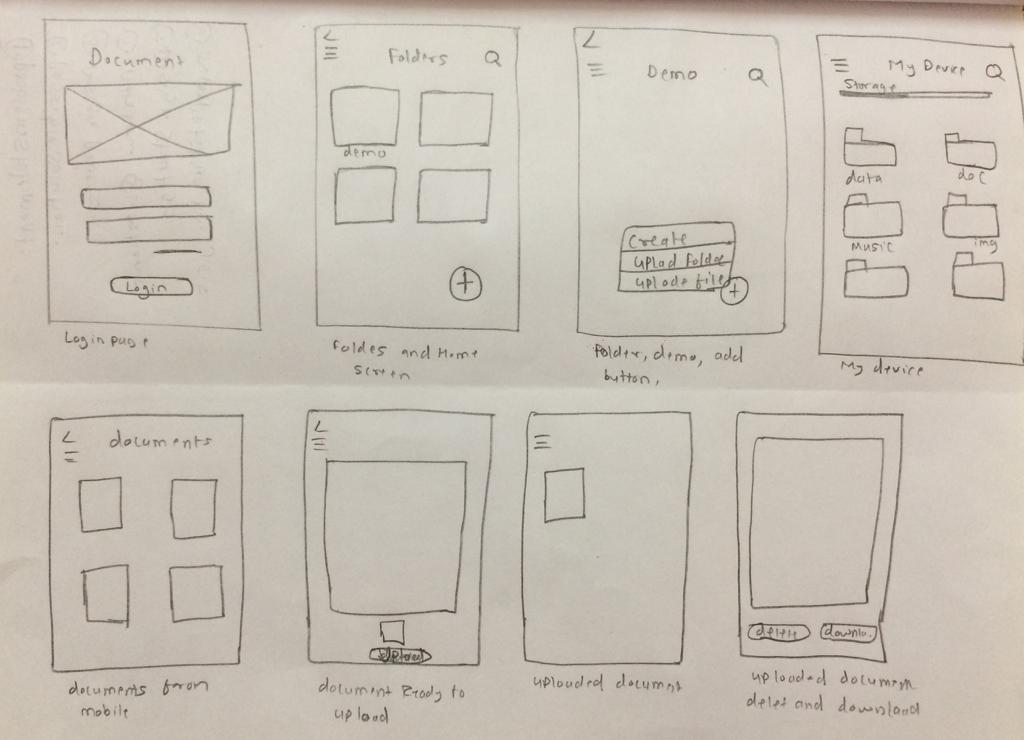 Document
Login
Login page
Folders
demo
Foldes and Home
screen
Demo
Create
uplad folder
uplode file
Folder, demo, add
button,
My Device
Storage
data
doc
Music
img
My device
documents
documents from
mobile
document Ready to
upload
uploaded document
delete
downlo.
uploaded document
delet and download